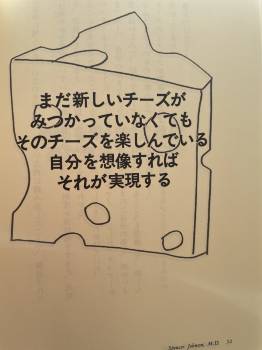 まだ新しいチーズが
みつかっていなくても
そのチーズを楽しんでいる
自分を想像すれば
それが実現する
Spencer Johnson, M.D.